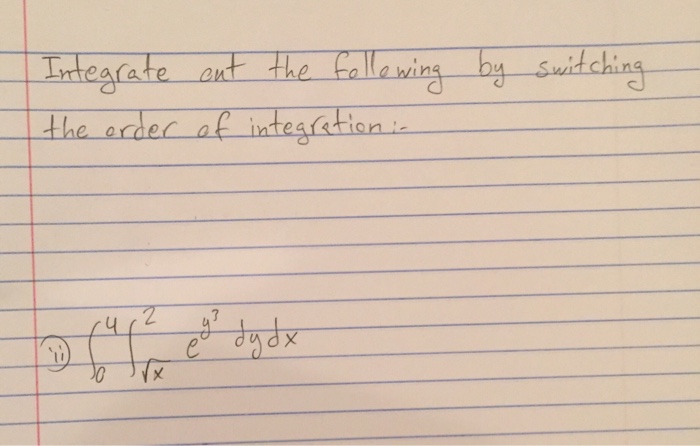 Integrate out the following by switching
the order of integration :-
ii) ∫₀⁴ ∫_√x² e^y³ dy dx